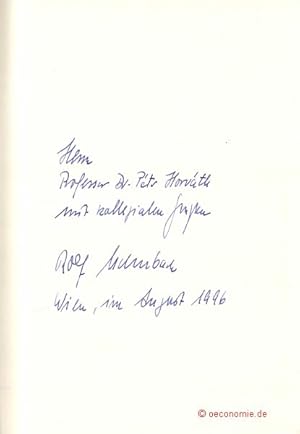 Herrn
Professor Dr. Péter Horváth
mit kollegialen Grüßen
Rolf
Wien, im August 1996
© oeconomie.de